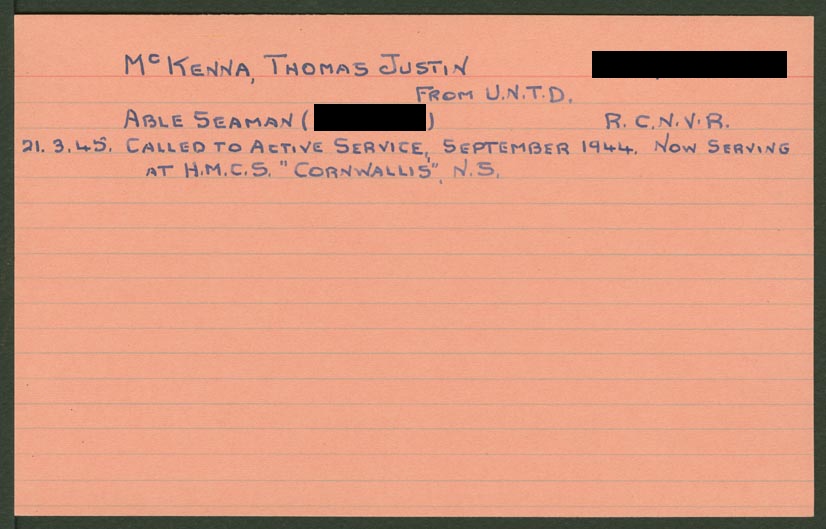 McKENNA, THOMAS JUSTIN
FROM U.N.T.D.
ABLE SEAMAN ( ) R.C.N.V.R.
21.3.45. CALLED TO ACTIVE SERVICE, SEPTEMBER 1944. NOW SERVING
AT H.M.C.S. "CORNWALLIS", N.S.